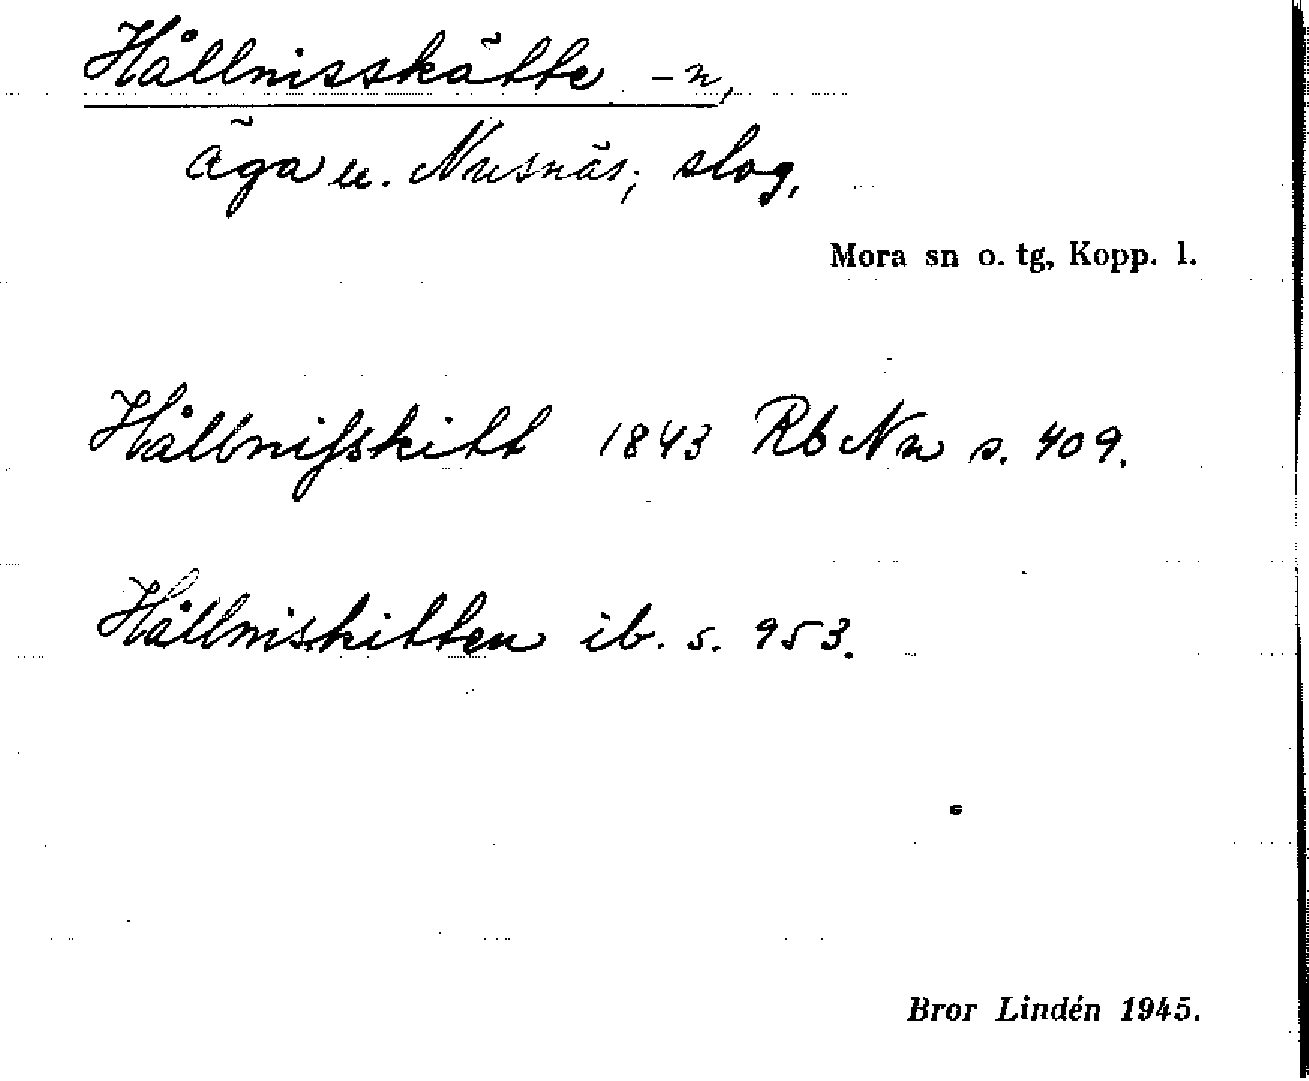 Hållnisskätte -n,
äga u. Nusnäs; slog,
Mora sn o. tg, Kopp. l.
Hållnisskitt 1843 Rb Nn s. 409.
Hållniskitten ib. s. 953.
Bror Lindén 1945.